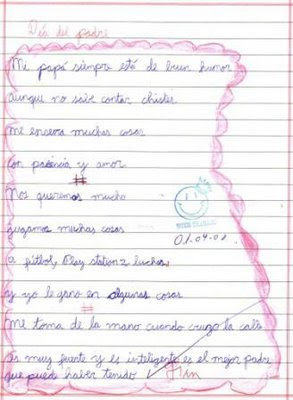 Día del padre
Me papá siempre está de buen humor
aunque no sabe contar chistes
me enseña muchas cosas
con paciencia y amor
Nos queremos mucho
jugamos muchas cosas
a fútbol, Play station 2 luchas,
y yo le gano en algunas cosas
Me toma de la mano cuando cruzo la calle
es muy fuerte y es inteligente es el mejor padre
que pude haber tenido Fin
BUEN TRABAJO
01-04-08